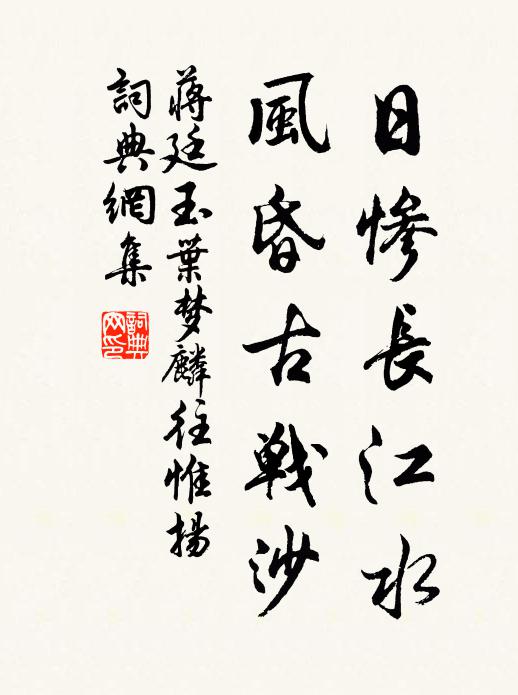 日慘長江水
風昏古戰沙
蔣廷玉葉梦麟往惟揚
詞典網集
詞典网印